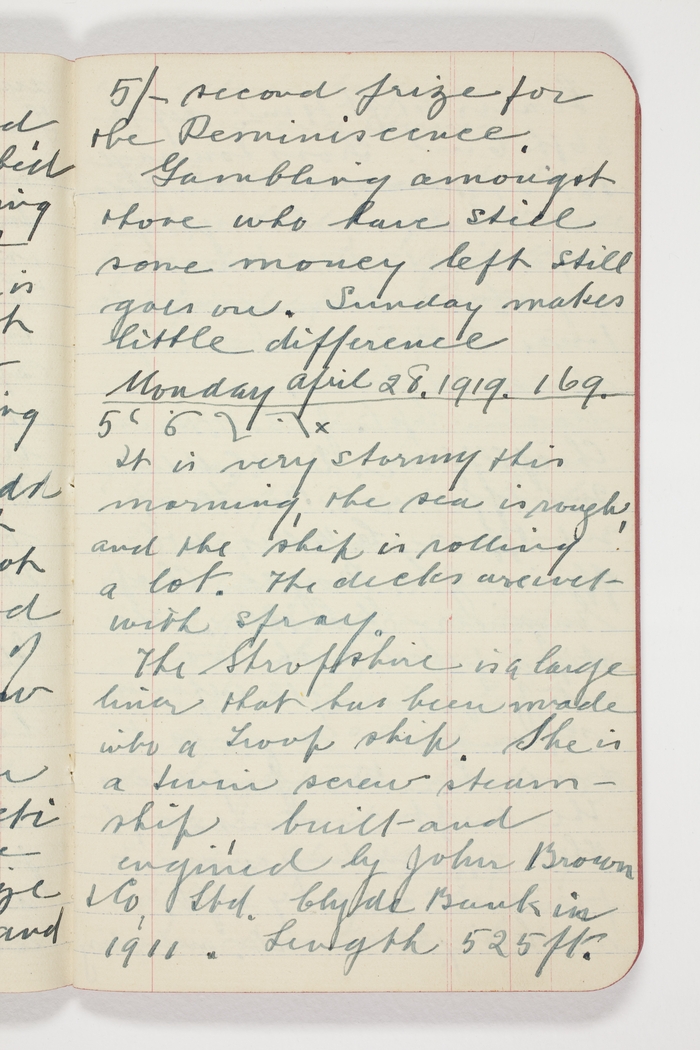 5/- second prize for
the Reminiscence.
Gambling amongst
those who have still
some money left still
goes on. Sunday makes
little difference
Monday April 28. 1919. 169.
It is very stormy this
morning, the sea is rough,
and the ship is rolling
a lot. The decks are wet
with spray.
The Shropshire is a large
liner that has been made
into a Troop ship. She is
a twin screw steam-
ship, built and
engined by John Brown
& Co, Ltd. Clyde Bank in
1911. Length 525 ft.